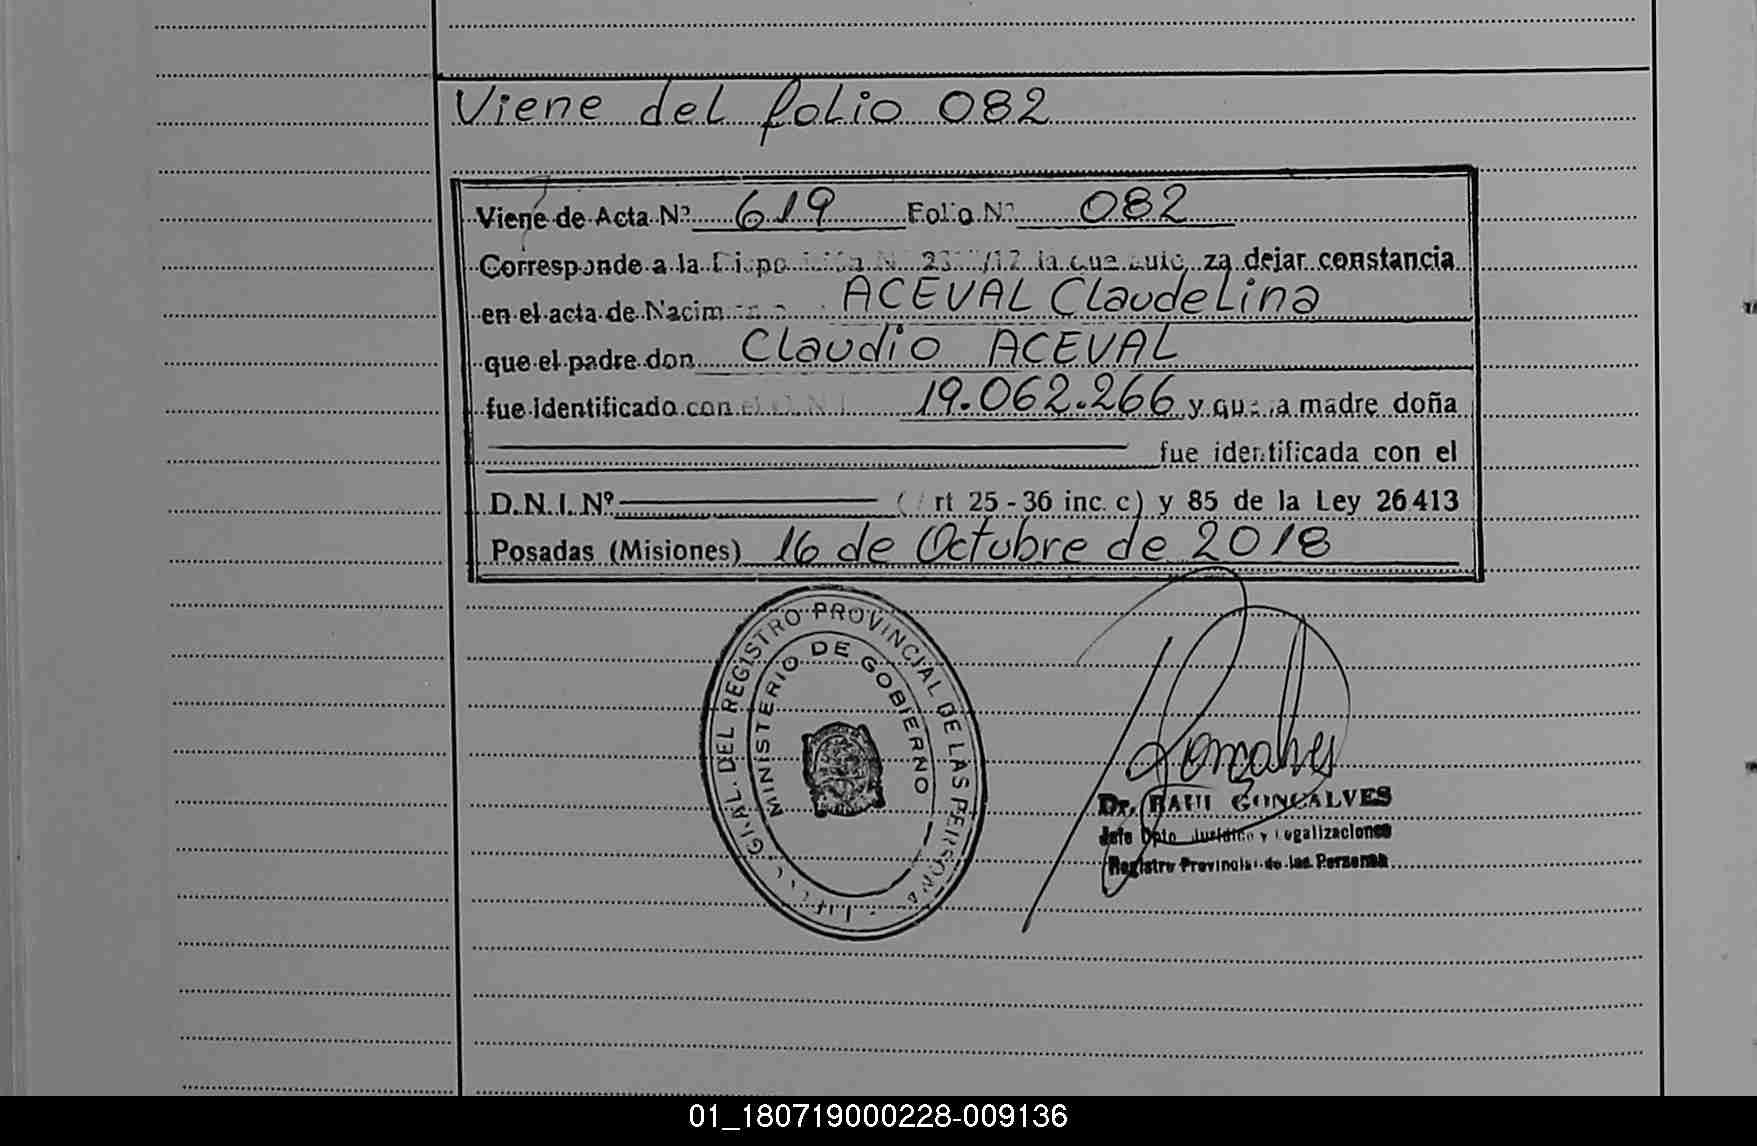 Viene del folio 082
Viene de Acta Nº 619 Folio Nº 082
Corresponde a la la que za dejar constancia
en el acta de Nacim ACEVAL Claudelina
que el padre don Claudio ACEVAL
fue identificado con el D.N.I. 19.062.266 y que la madre doña
fue identificada con el
D.N.I. Nº (Art 25 - 36 inc. c) y 85 de la Ley 26413
Posadas (Misiones) 16 de Octubre de 2018
GRAL. DEL REGISTRO PROVINCIAL DE LAS PERSONAS
MINISTERIO DE GOBIERNO
Goncalves
Dr. RAUL GONCALVES
Jefe Dpto Jurídico y Legalizaciones
Registro Provincial de las Personas
01_180719000228-009136